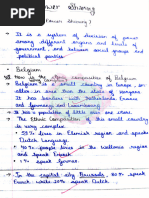 Power Sharing
(Power Sharing)
→ It is a system of division of power
among different organs and levels of
government, and between social groups and
political parties.
→ Belgium
How is the ethnic composition of Belgium
very complex
→ Belgium is a small country in Europe, smaller
in area than the state of Haryana
→ It has borders with Netherlands, France
and Germany and Luxembourg
→ It has a population of little over one crore
→ The Ethnic Composition of this small country
is very complex.
→ 59% lives in Flemish region and speaks
Dutch language.
→ 40% people lives in the Wallonia region
and speak French.
→ In the capital city Brussels, 80% speak
French while 20% speak Dutch.